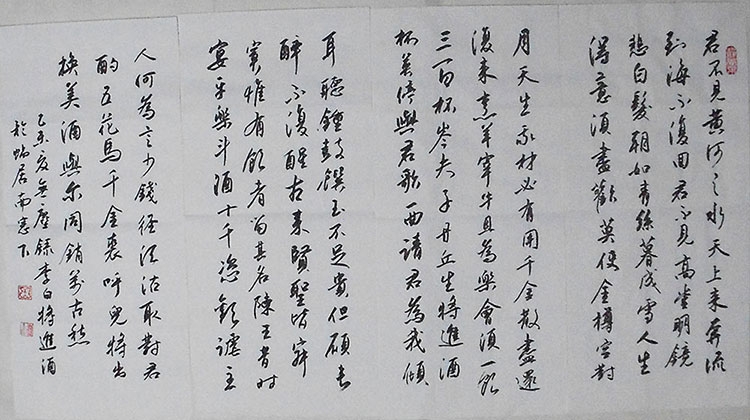 君不見黄河之水天上来奔流
到海不復回君不見高堂明鏡
悲白髮朝如青絲暮成雪人生
得意須盡歡莫使金樽空對
月天生我材必有用千金散盡還
復来烹羊宰牛且為樂會須一飲
三百杯岑夫子丹丘生將進酒
杯莫停與君歌一曲請君為我傾
耳聽鐘鼓饌玉不足貴但願長
醉不復醒古来賢聖皆寂
寞惟有飲者留其名陳王昔时
宴平樂斗酒十千恣歡謔主
人何為言少錢径須沽取對君
酌五花馬千金裘呼兒將出
换美酒與尔同銷萬古愁
乙未夏無塵錄李白將進酒
於蜗居南窓下